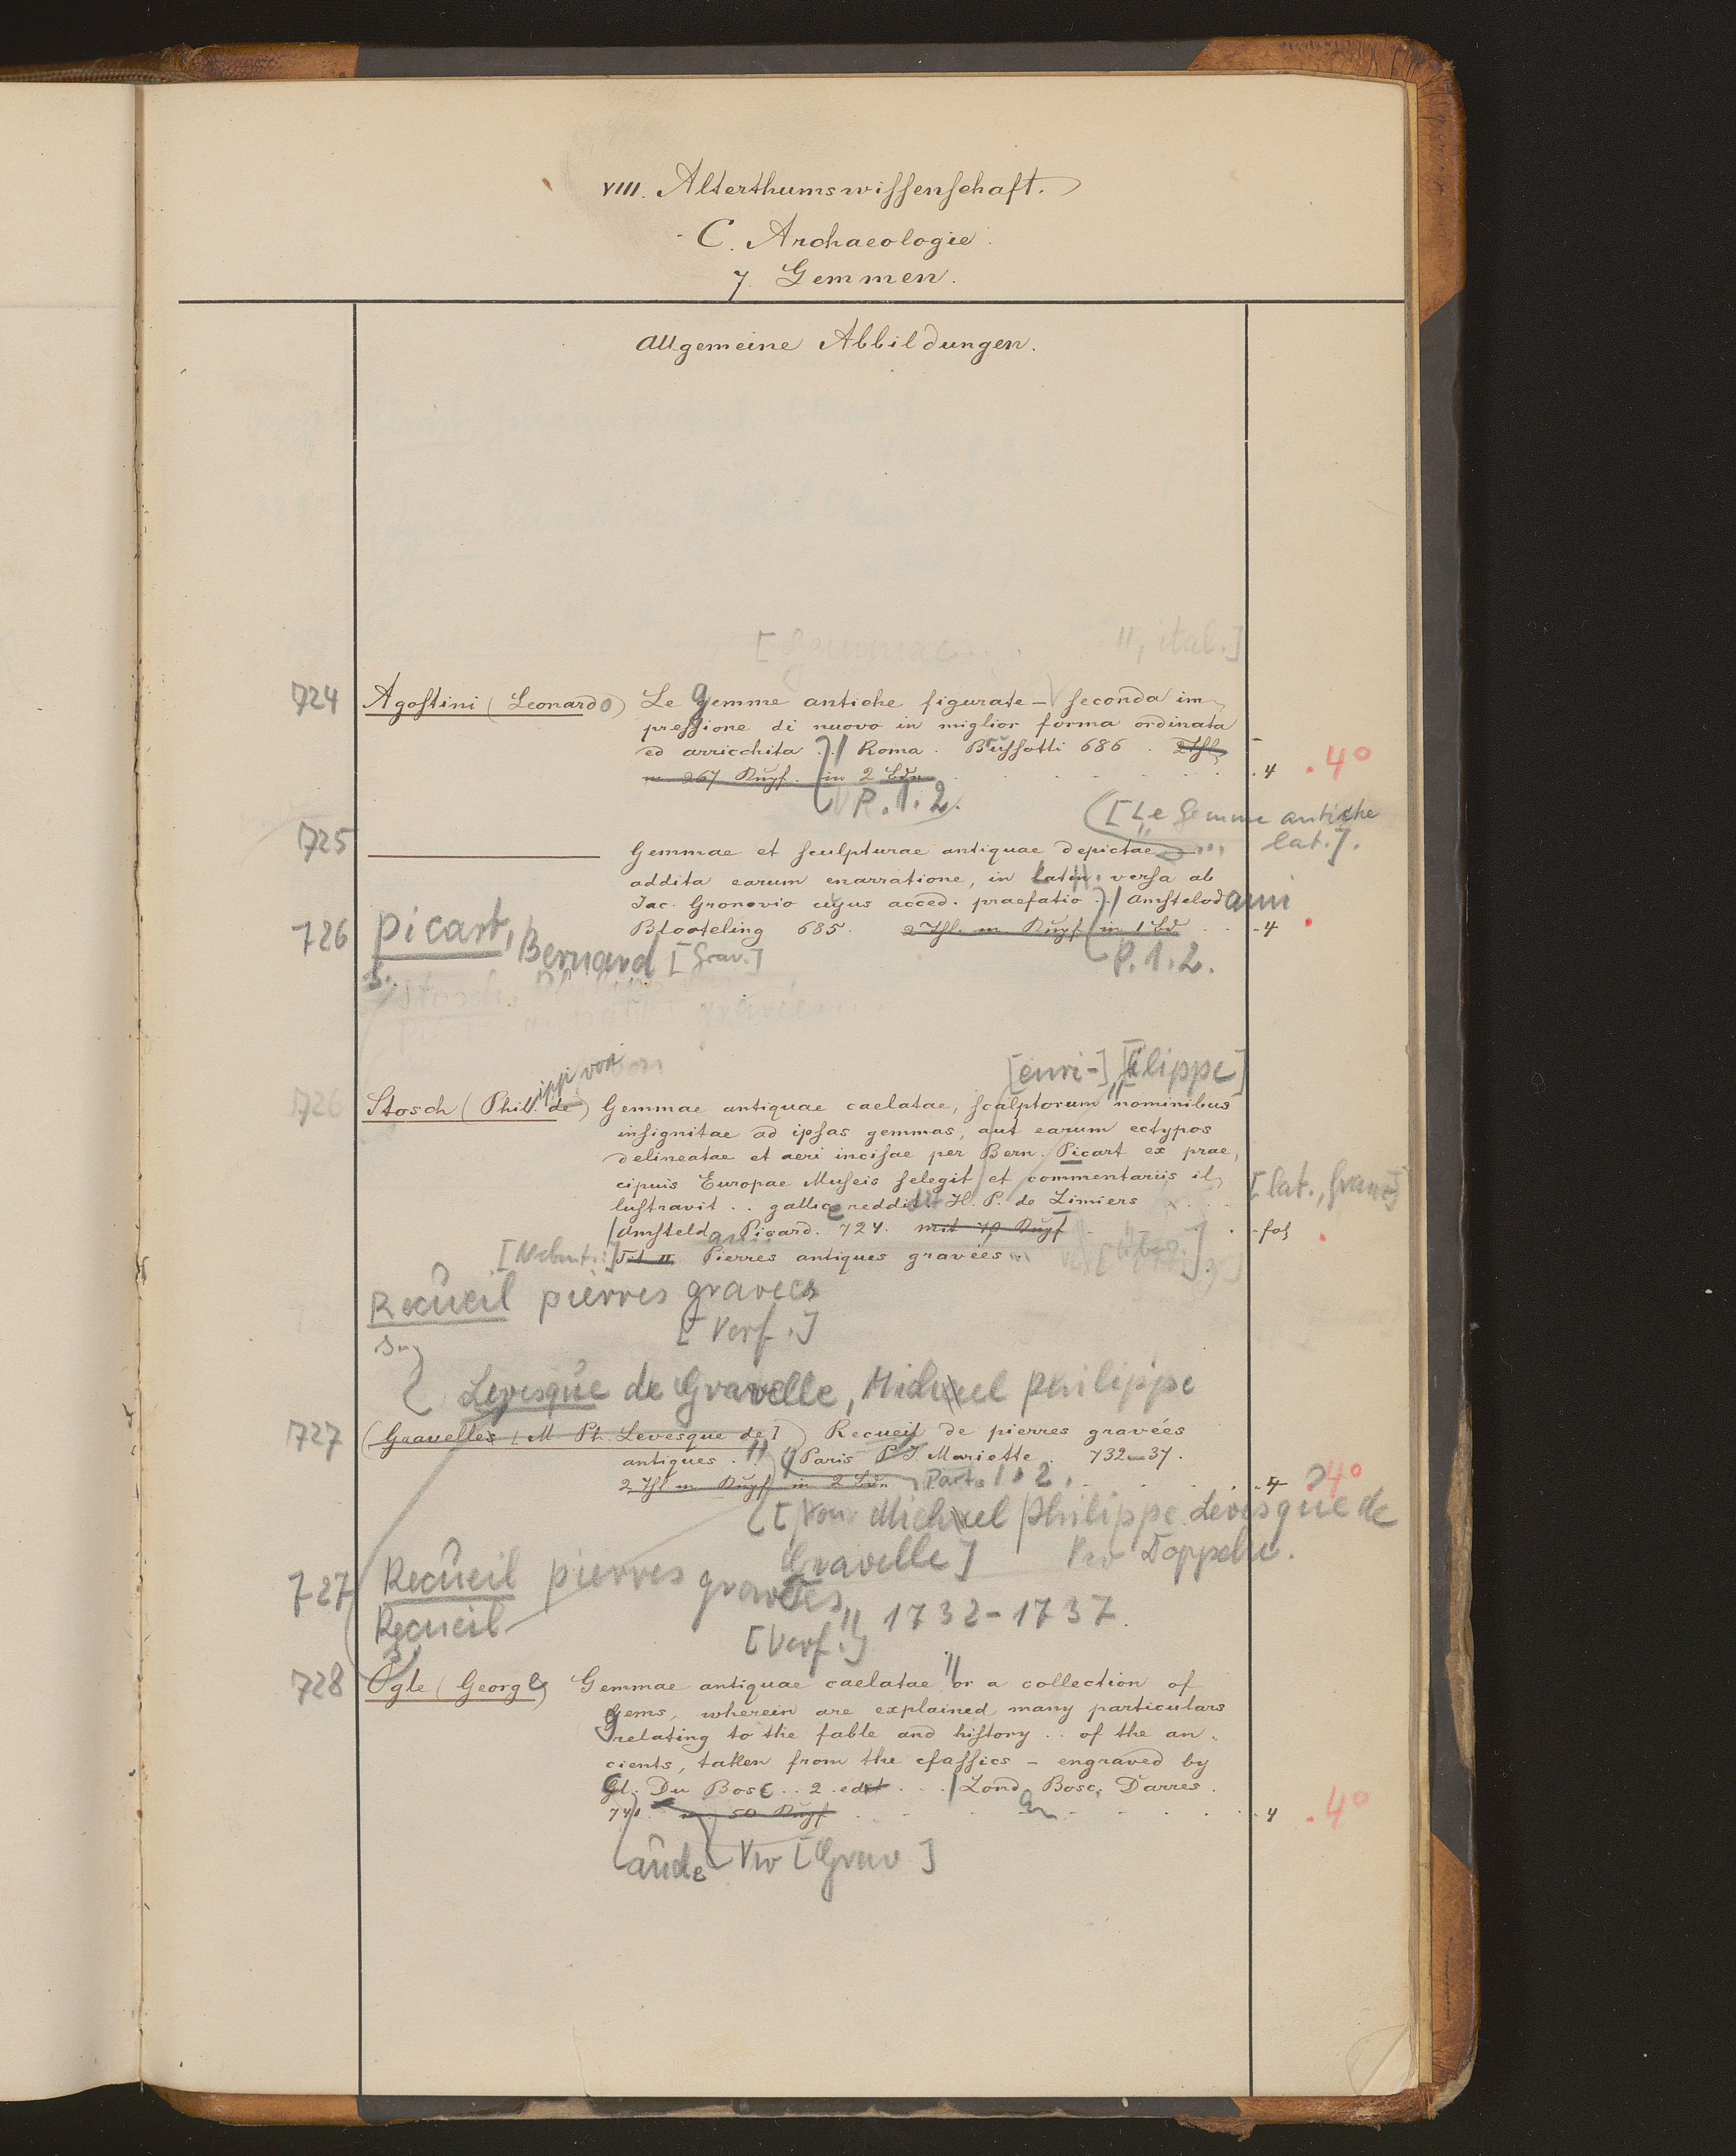 VIII. Alterthumswissenschaft.
C. Archaeologie.
7. Gemmen.
Allgemeine Abbildungen.
[Gemmae... ", ital.]
724 Agostini (Leonardo) Le gemme antiche figurate – seconda im-
pressione di nuovo in miglior forma ordinata
ed arricchita .. Roma. Bussotti 686. 2 Thl
m 267 Kupf. in 2 Bdn . 4 . 4°
P. 1. 2.
[Le Gemme antiche
lat.].
725 Gemmae et sculpturae antiquae depictae
addita earum enarratione, in latin. versa ab
Jac. Gronovio cujus acced. praefatio .. Amstelodami
Blooteling 685. 2 Thl. m Kupf in 1 Bd . . 4
P. 1. 2.
726 Picart, Bernard [Grav.]
s.
Stosch,
gravées...
[enri-] [ilippe]
726 Stosch (Phil. de) ippi von Gemmae antiquae caelatae, scalptorum nominibus
insignitae ad ipsas gemmas, aut earum ectypos
delineatae et aeri incisae per Bern. Picart ex prae-
cipuis Europae Museis selegit et commentariis il-
lustravit .. gallice reddidit H. P. de Limiers [lat., franz]
Amsteld Picard. 724. mit 70 Kupf . fol
[Nebent.:] Tit II Pierres antiques gravées.
Recueil pierres gravees
[Verf.]
s.
Levesque de Gravelle, Michel Philippe
727 (Gravelles [M. Ph. Levesque de] ) Recueil de pierres gravées
antiques. " Paris P. J. Mariette. 732–37.
2 Thl m Kupf in 2 Bdn Part. 1. 2. . 4 4°
[Von Michel Philippe Levesque de
Gravelle] Kw Doppelw.
727 Recueil pierres gravées
Recueil " 1732-1737.
s. [Verf.]
728 Ogle (George) Gemmae antiquae caelatae " or a collection of
gems, wherein are explained many particulars
relating to the fable and history .. of the an-
cients, taken from the classics – engraved by
Cl. Du Bosc .. 2. edit . . . Lond. Bosc, Darres.
741. m. 50 Kupf . 4 . 4°
Kw [Grav]